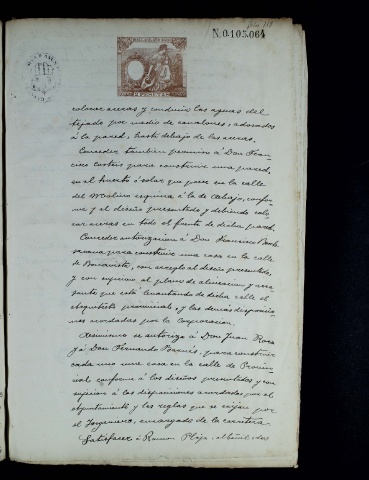 N.0.105.064
colocar aceras y conducir las aguas del
tejado por medio de canalones, adosados
á la pared, hasta debajo de las aceras.
Conceder tambien permiso á Don Fran-
cisco Casteis para construir una pared,
en el huerto ó solar que posee en la calle
del Molino esquina á la de Abajo, confor-
me y al diseño presentado y debiendo colo-
car aceras en todo el frente de dicha pared.
Conceder autorizacion á Don Francisco
para construir una casa en la calle
de Buenavista, con arreglo al diseño presentado,
y con sujecion al plano de alineacion y rasa
sante que está levantando de dicha calle el
Arquitecto provincial, y las demas disposicio-
nes acordadas por la Corporacion.
Asimismo se autoriza á Don Juan Roca
y á Don Fernando para construir
cada uno una casa en la calle de Provin-
cial conforme á los diseños presentados y con
sujecion á las disposiciones acordadas por el
Ayuntamiento y las reglas que se exijan por
el Ingeniero, encargado de la carretera.
Satisfacer á Ramon Ploja, albañil, dos